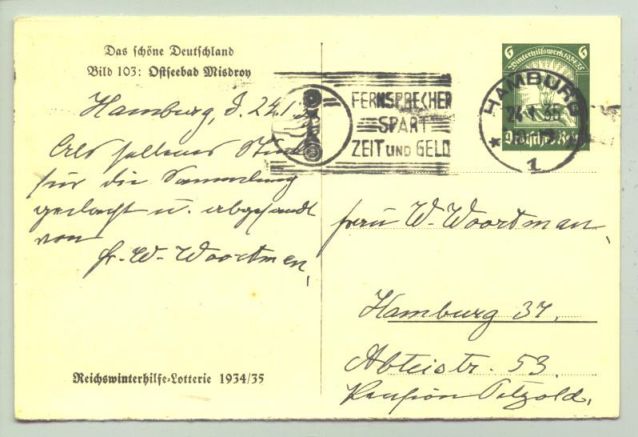 Das schöne Deutschland
Bild 103: Ostseebad Misdroy
Hamburg, d. 24.1.
Als seltenes Stück
für die Sammlung
gedacht u. abgesandt
von
Fr. W. Woortman,
Reichswinterhilfe-Lotterie 1934/35
FERNSPRECHER
SPART
ZEIT UND GELD
6 6
Winterhilfswerk
HAMBURG
1
Deutsches Reich
Frau W. Woortman,
Hamburg 37.
Abteistr. 53.
Pension Petzold.